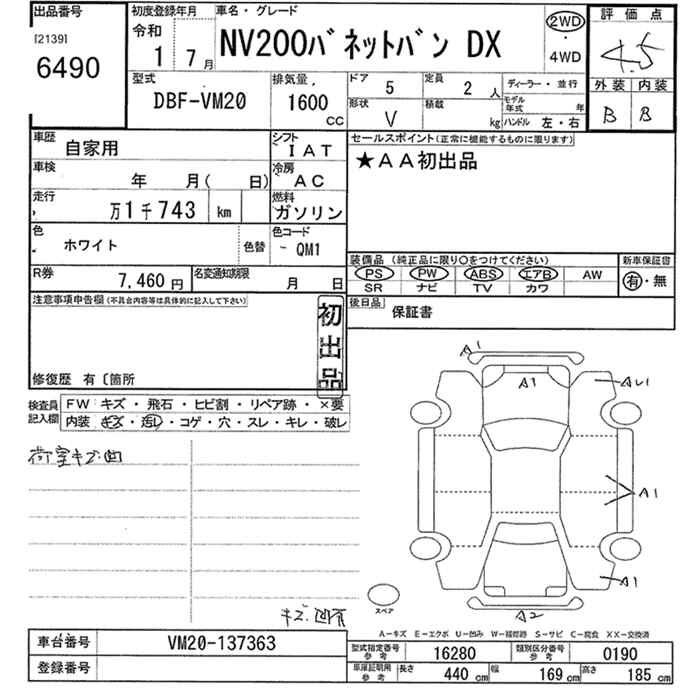 出品番号 初度登録年月 車名・グレード 評価点
[2139] 令和 2WD
6490 1 7月 NV200バネットバン DX ・ 4.5
4WD
型式 排気量. ドア 5 定員 2 人 ディーラー・並行 外装 内装
DBF-VM20 1600 CC 形状 V 積載 kg モデル年式 年 B B
ハンドル 左・右
車歴 自家用 シフト IAT セールスポイント(正常に機能するものに限ります)
車検 年 月( 日) 冷房 AC ★AA初出品
走行 万1千743 km 燃料 ガソリン
色 ホワイト 色替 色コード - QM1
装備品(純正品に限り○をつけてください) 新車保証書
R券 7,460円 名変通知期限 月 日 PS PW ABS エアB AW 有・無
SR ナビ TV カワ
注意事項申告欄(不具合内容等は具体的に記入して下さい) 初出品 後日品 保証書
修復歴 有〔箇所
検査員記入欄 FW キズ・飛石・ヒビ割・リペア跡・×要
内装 キズ・汚レ・コゲ・穴・スレ・キレ・破レ
荷室キズ凹
A1
A1
AU1
A1
A1
A2
スペア
キズ凹有
A-キズ E-エクボ U-凹み W-補修跡 S-サビ C-腐食 XX-交換済
車台番号 VM20-137363 型式指定番号 参考 16280 類別区分番号 参考 0190
登録番号 車庫証明用 参考 長さ 440 cm 幅 169 cm 高さ 185 cm